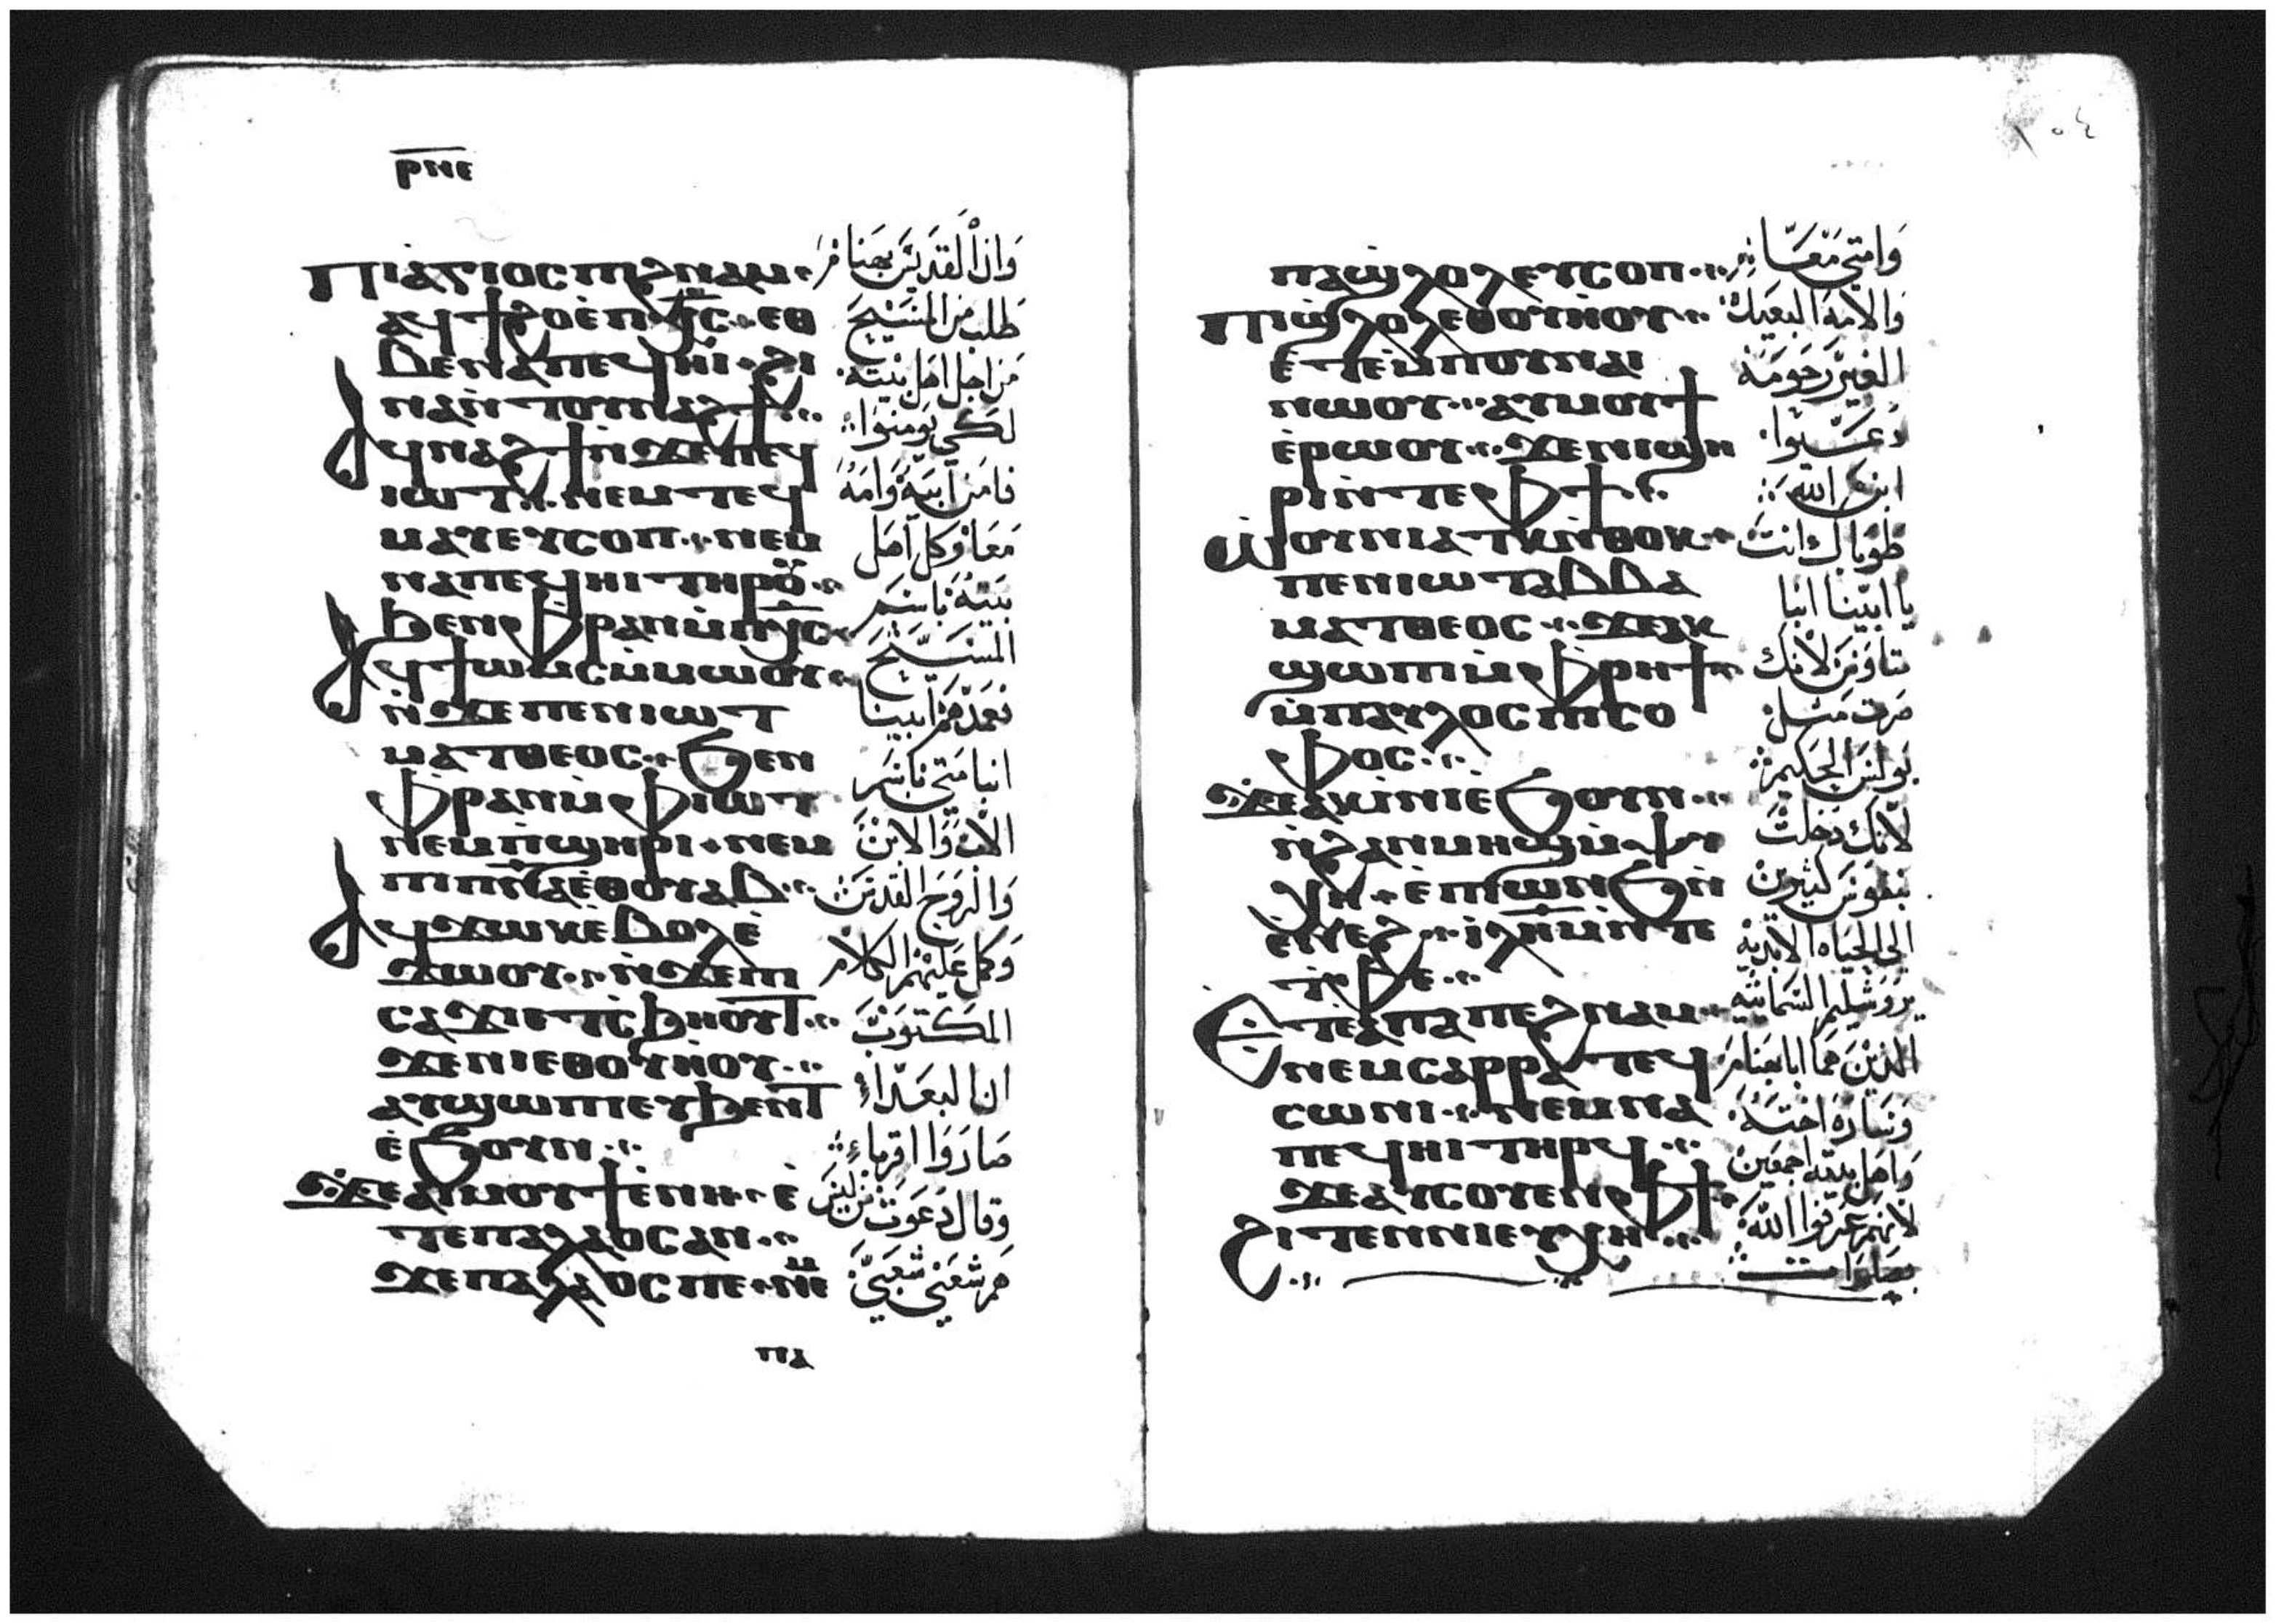 ⲣⲛⲉ
ⲡⲓⲁⲅⲓⲟⲥ ⲡⲓϩⲛⲁⲙ
ⲁϥϯϩⲟ ⲉ̀ⲡⲭ̅ⲥ̅ ⲉⲑ
ⲃⲉⲛⲁⲡⲉϥⲏⲓ ϩⲓ
ⲛⲁ ⲛ̀ⲧⲟⲩⲛⲁϩϯ
ⲁϥⲛⲁϩϯ ⲛ̀ϫⲉⲡⲉϥ
ⲓⲱⲧ ⲛⲉⲙⲧⲉϥ
ⲙⲁⲩ ⲉⲩⲥⲟⲡ ⲛⲉⲙ
ⲛⲁⲡⲉϥⲏⲓ ⲧⲏⲣⲟⲩ
ϧⲉⲛⲫⲣⲁⲛ ⲙ̀ⲡⲭ̅ⲥ̅
ⲁϥϯⲱⲙⲥ ⲙ̀ⲙⲱⲟⲩ
ⲛ̀ϫⲉⲡⲉⲛⲓⲱⲧ
ⲙⲁⲧⲑⲉⲟⲥ ϧⲉⲛ
ⲫⲣⲁⲛ ⲙ̀ⲫⲓⲱⲧ
ⲛⲉⲙⲡ̀ϣⲏⲣⲓ ⲛⲉⲙ
ⲡⲓⲡ̅ⲛ̅ⲁ̅ ⲉ̀ⲑⲟⲩⲁⲃ
ⲁϥϫⲱⲕ ⲉ̀ⲃⲟⲗ ⲉ̀
ϫⲱⲟⲩ ⲛ̀ϫⲉⲡⲓ
ⲥⲁϫⲓ ⲉⲧⲥ̀ϧⲏⲟⲩⲧ
ϫⲉⲛⲓⲉⲑⲟⲩⲏ̀ⲟⲩ
ⲁⲩϣⲱⲡⲓ ⲉⲩϧⲉⲛⲧ
ⲉ̀ϧⲟⲩⲛ
ϫⲉⲁⲓⲙⲟⲩϯ ⲉ̀ⲛⲏ ⲉ̀
ⲧⲉⲡⲁⲗⲁⲟⲥ ⲁⲛ
ϫⲉⲡⲁⲗⲁⲟⲥ ⲡⲉ ⲛⲉⲙ
ⲡⲁ
وان القديس بهنام
طلب من المسيح
من اجل اهل بيته
لكي يومنوا
فامن ابيه وامه
معا وكل اهل
بيته باسم
المسيح
فعمدهم ابينا
انبا متى باسم
الاب والابن
والروح القدس
وكمل عليهم الكلام
المكتوب
ان البعداء
صاروا اقرباء
وقال دعوت من ليس
هم شعبي شعبي
١٠٤
ⲡⲁϣⲗⲟⲗ ⲉⲩⲥⲟⲡ
ⲡⲓϣⲗⲟⲗ ⲉⲑⲟⲩⲏ̀ⲟⲩ
ⲉ̀ⲧⲉⲙ̀ⲡⲟⲩⲛⲁⲓ
ⲛⲱⲟⲩ ⲁⲩⲙⲟⲩϯ
ⲉ̀ⲣⲱⲟⲩ ϫⲉⲛⲓϣⲏ
ⲣⲓ ⲛ̀ⲧⲉⲫϯ
ⲱ̀ⲟⲩⲛⲓⲁⲧⲕ ⲛ̀ⲑⲟⲕ
ⲡⲉⲛⲓⲱⲧ ⲁⲃⲃⲁ
ⲙⲁⲧⲑⲉⲟⲥ ϫⲉⲁⲕ
ϣⲱⲡⲓ ⲙ̀ⲫⲣⲏϯ
ⲙ̀ⲡⲁⲩⲗⲟⲥ ⲡⲓⲥⲟ
ⲫⲟⲥ
ϫⲉⲁⲕⲓ̀ⲛⲓ ⲉ̀ϧⲟⲩⲛ
ⲛ̀ϩⲁⲛⲙⲏϣ ⲙ̀ⲯⲩ
ⲭⲏ ⲉ̀ⲡⲓⲱⲛϧ ⲛ̀
ⲉⲛⲉϩ ⲓ̅ⲗ̅ⲏ̅ⲙ̅ ⲛ̀ⲧⲉ
ⲧ̀ⲫⲉ
ⲉⲧⲉⲁⲡⲁ ⲡⲉϩⲛⲁⲙ
ⲛⲉⲙⲥⲁⲣⲣⲁ ⲧⲉϥ
ⲥⲱⲛⲓ ⲛⲉⲙⲛⲁ
ⲡⲉϥⲏⲓ ⲧⲏⲣϥ
ϫⲉⲁⲩⲥⲟⲩⲉⲛ ⲫϯ
ϩⲓⲧⲉⲛⲛⲓⲉⲩⲭⲏ
وامتي معا
والامة البعيدة
الغير مرحومة
دعيوا
ابنا الله
طوباك انت
يا ابينا انبا
متاوس لانك
صرت مثل
بولس الحكيم
لانك دخلت
بنفوس كثيرين
الى الحياه الابدية
يروشليم السمائيه
الذين هم ابا بهنام
وساره اخته
واهل بيته اجمعين
لانهم عرفوا الله